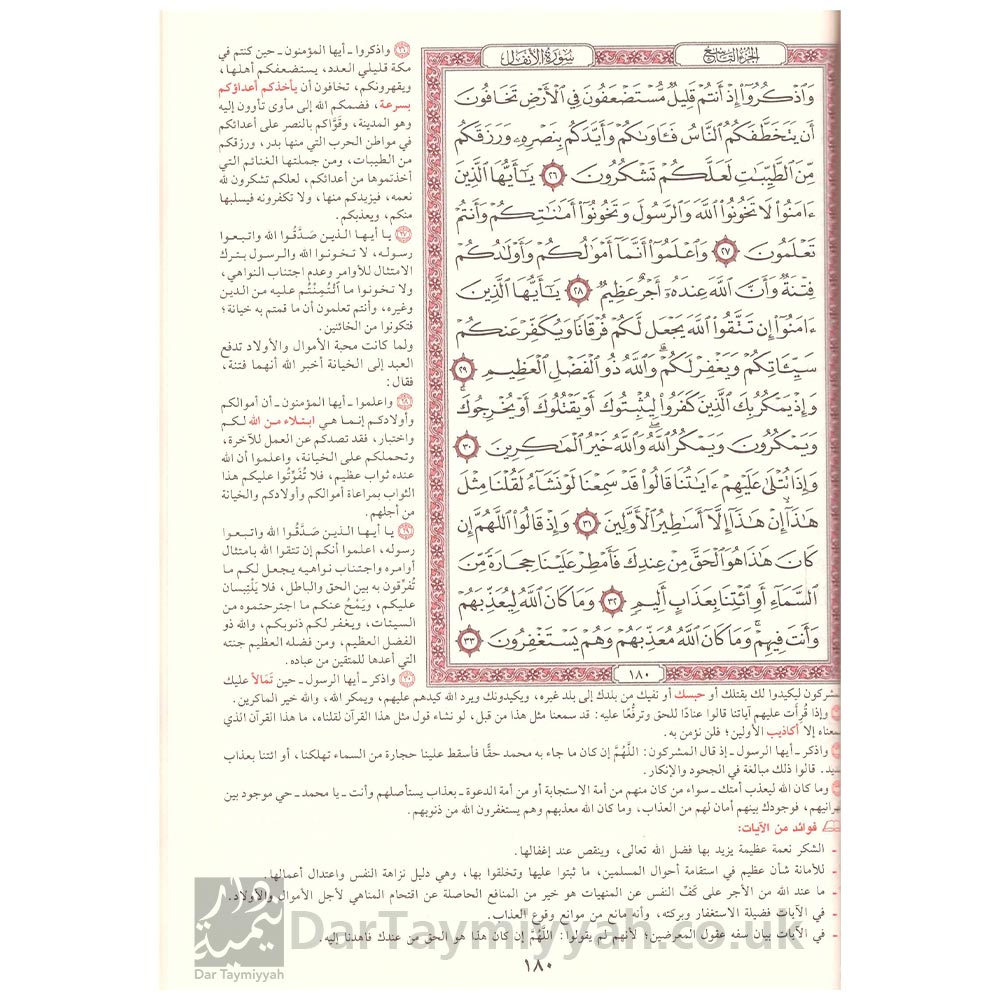 الجزء التاسع
سورة الأنفال
وَٱذۡكُرُوٓاْ إِذۡ أَنتُمۡ قَلِيلٞ مُّسۡتَضۡعَفُونَ فِي ٱلۡأَرۡضِ تَخَافُونَ
أَن يَتَخَطَّفَكُمُ ٱلنَّاسُ فَـَٔاوَىٰكُمۡ وَأَيَّدَكُم بِنَصۡرِهِۦ وَرَزَقَكُم
مِّنَ ٱلطَّيِّبَٰتِ لَعَلَّكُمۡ تَشۡكُرُونَ ٢٦ يَٰٓأَيُّهَا ٱلَّذِينَ
ءَامَنُواْ لَا تَخُونُواْ ٱللَّهَ وَٱلرَّسُولَ وَتَخُونُوٓاْ أَمَٰنَٰتِكُمۡ وَأَنتُمۡ
تَعۡلَمُونَ ٢٧ وَٱعۡلَمُوٓاْ أَنَّمَآ أَمۡوَٰلُكُمۡ وَأَوۡلَٰدُكُمۡ
فِتۡنَةٞ وَأَنَّ ٱللَّهَ عِندَهُۥٓ أَجۡرٌ عَظِيمٞ ٢٨ يَٰٓأَيُّهَا ٱلَّذِينَ
ءَامَنُوٓاْ إِن تَتَّقُواْ ٱللَّهَ يَجۡعَل لَّكُمۡ فُرۡقَانٗا وَيُكَفِّرۡ عَنكُمۡ
سَيِّـَٔاتِكُمۡ وَيَغۡفِرۡ لَكُمۡۗ وَٱللَّهُ ذُو ٱلۡفَضۡلِ ٱلۡعَظِيمِ ٢٩
وَإِذۡ يَمۡكُرُ بِكَ ٱلَّذِينَ كَفَرُواْ لِيُثۡبِتُوكَ أَوۡ يَقۡتُلُوكَ أَوۡ يُخۡرِجُوكَۚ
وَيَمۡكُرُونَ وَيَمۡكُرُ ٱللَّهُۖ وَٱللَّهُ خَيۡرُ ٱلۡمَٰكِرِينَ ٣٠
وَإِذَا تُتۡلَىٰ عَلَيۡهِمۡ ءَايَٰتُنَا قَالُواْ قَدۡ سَمِعۡنَا لَوۡ نَشَآءُ لَقُلۡنَا مِثۡلَ
هَٰذَآ إِنۡ هَٰذَآ إِلَّآ أَسَٰطِيرُ ٱلۡأَوَّلِينَ ٣١ وَإِذۡ قَالُواْ ٱللَّهُمَّ إِن
كَانَ هَٰذَا هُوَ ٱلۡحَقَّ مِنۡ عِندِكَ فَأَمۡطِرۡ عَلَيۡنَا حِجَارَةٗ مِّنَ
ٱلسَّمَآءِ أَوِ ٱئۡتِنَا بِعَذَابٍ أَلِيمٖ ٣٢ وَمَا كَانَ ٱللَّهُ لِيُعَذِّبَهُمۡ
وَأَنتَ فِيهِمۡۚ وَمَا كَانَ ٱللَّهُ مُعَذِّبَهُمۡ وَهُمۡ يَسۡتَغۡفِرُونَ ٣٣
١٨٠
٢٦ واذكروا ـ أيها المؤمنون ـ حين كنتم في
مكة قليلي العدد، يستضعفكم أهلها،
ويقهرونكم، تخافون أن يأخذكم أعداؤكم
بسرعة، فضمكم الله إلى مأوى تأوون إليه
وهو المدينة، وقَوَّاكم بالنصر على أعدائكم
في مواطن الحرب التي منها بدر، ورزقكم
من الطيبات، ومن جملتها الغنائم التي
أخذتموها من أعدائكم، لعلكم تشكرون لله
نعمه، فيزيدكم منها، ولا تكفرونه فيسلبها
منكم، ويعذبكم.
٢٧ يا أيها الذين صَدَّقُوا الله واتبعوا
رسوله، لا تخونوا الله والرسول بترك
الامتثال للأوامر وعدم اجتناب النواهي،
ولا تخونوا ما ائْتُمِنْتُم عليه من الدين
وغيره، وأنتم تعلمون أن ما قمتم به خيانة؛
فتكونوا من الخائنين.
ولما كانت محبة الأموال والأولاد تدفع
العبد إلى الخيانة أخبر الله أنهما فتنة،
فقال:
٢٨ واعلموا ـ أيها المؤمنون ـ أن أموالكم
وأولادكم إنما هي ابتلاء من الله لكم
واختبار، فقد تصدكم عن العمل للآخرة،
وتحملكم على الخيانة، واعلموا أن الله
عنده ثواب عظيم، فلا تُفَوِّتُوا عليكم هذا
الثواب بمراعاة أموالكم وأولادكم والخيانة
من أجلهم.
٢٩ يا أيها الذين صَدَّقُوا الله واتبعوا
رسوله، اعلموا أنكم إن تتقوا الله بامتثال
أوامره واجتناب نواهيه يجعل لكم ما
تُفرِّقون به بين الحق والباطل، فلا يَلْتَبِسان
عليكم، ويَمْحُ عنكم ما اجترحتموه من
السيئات، ويغفر لكم ذنوبكم، والله ذو
الفضل العظيم، ومن فضله العظيم جنته
التي أعدها للمتقين من عباده.
٣٠ واذكر ـ أيها الرسول ـ حين تَمَالأ عليك
مشركون ليكيدوا لك بقتلك أو حبسك أو نفيك من بلدك إلى بلد غيره، ويكيدونك ويرد الله كيدهم عليهم، ويمكر الله، والله خير الماكرين.
وإذا قُرِأت عليهم آياتنا قالوا عنادًا للحق وترفُّعًا عليه: قد سمعنا مثل هذا من قبل، لو نشاء قول مثل هذا القرآن لقلناه، ما هذا القرآن الذي
معناه إلا أكاذيب الأولين؛ فلن نؤمن به.
واذكر ـ أيها الرسول ـ إذ قال المشركون: اللَّهُمَّ إن كان ما جاء به محمد حقًّا فأسقط علينا حجارة من السماء تهلكنا، أو ائتنا بعذاب
يد. قالوا ذلك مبالغة في الجحود والإنكار.
وما كان الله ليعذب أمتك ـ سواء من كان منهم من أمة الاستجابة أو من أمة الدعوة ـ بعذاب يستأصلهم وأنت ـ يا محمد ـ حي موجود بين
هرانيهم، فوجودك بينهم أمان لهم من العذاب، وما كان الله معذبهم وهم يستغفرون الله من ذنوبهم.
فوائد من الآيات:
ـ الشكر نعمة عظيمة يزيد بها فضل الله تعالى، وينقص عند إغفالها.
ـ للأمانة شأن عظيم في استقامة أحوال المسلمين، ما ثبتوا عليها وتخلقوا بها، وهي دليل نزاهة النفس واعتدال أعمالها.
ـ ما عند الله من الأجر على كَفِّ النفس عن المنهيات هو خير من المنافع الحاصلة عن اقتحام المناهي لأجل الأموال والأولاد.
ـ في الآيات فضيلة الاستغفار وبركته، وأنه مانع من موانع وقوع العذاب.
ـ في الآيات بيان سفه عقول المعرضين؛ لأنهم لم يقولوا: اللَّهُمَّ إن كان هذا هو الحق من عندك فأهدنا إليه.
١٨٠
دار تيمية
Dar Taymiyyah
DarTaymiyyah.co.uk